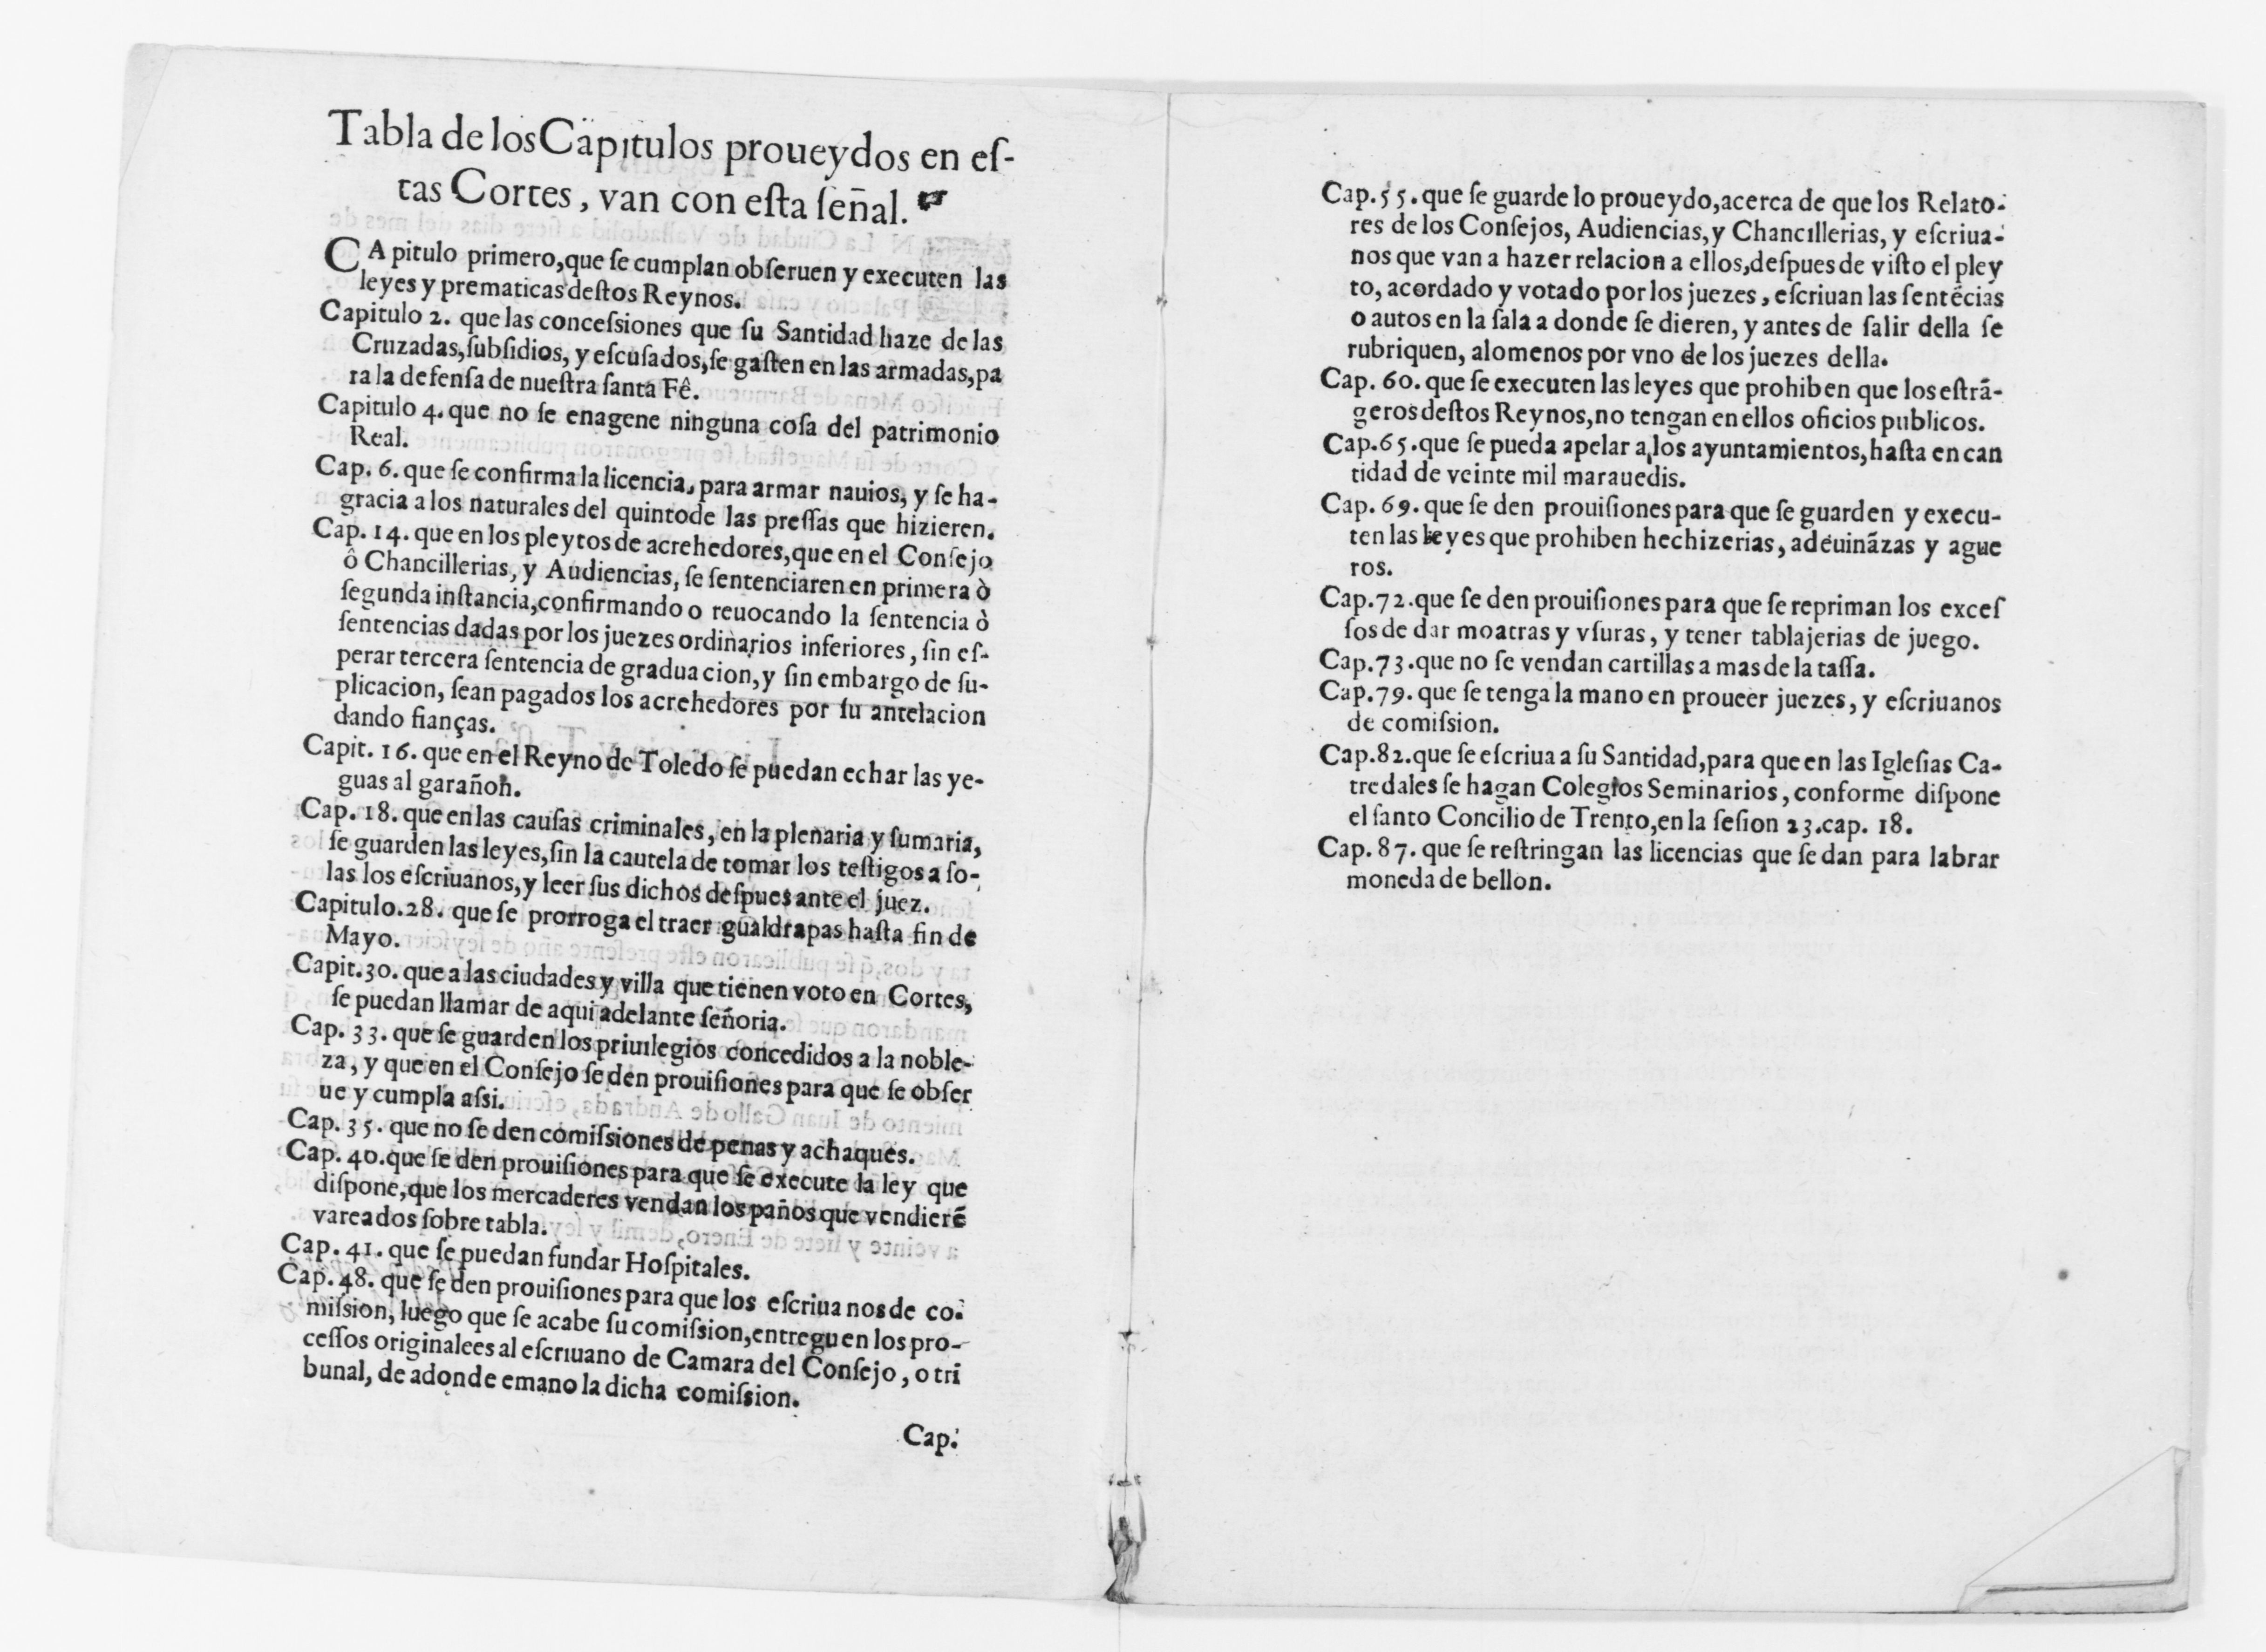 Tabla de los Capitulos proueydos en eſ-
tas Cortes, van con eſta ſeñal. ☛
CApitulo primero, que ſe cumplan obſeruen y executen las
leyes y prematicas deſtos Reynos.
Capitulo 2. que las conceſsiones que ſu Santidad haze de las
Cruzadas, ſubſidios, y eſcuſados, ſe gaſten en las armadas, pa
ra la defenſa de nueſtra ſanta Fê.
Capitulo 4. que no ſe enagene ninguna coſa del patrimonio
Real.
Cap. 6. que ſe confirma la licencia, para armar nauios, y ſe ha-
gracia a los naturales del quinto de las preſſas que hizieren.
Cap. 14. que en los pleytos de acrehedores, que en el Conſejo
ô Chancillerias, y Audiencias, ſe ſentenciaren en primera ò
ſegunda inſtancia, confirmando o reuocando la ſentencia ò
ſentencias dadas por los juezes ordinarios inferiores, ſin eſ-
perar tercera ſentencia de graduacion, y ſin embargo de ſu-
plicacion, ſean pagados los acrehedores por ſu antelacion
dando fianças.
Capit. 16. que en el Reyno de Toledo ſe puedan echar las ye-
guas al garañon.
Cap. 18. que en las cauſas criminales, en la plenaria y ſumaria,
ſe guarden las leyes, ſin la cautela de tomar los teſtigos a ſo-
las los eſcriuanos, y leer ſus dichos deſpues ante el juez.
Capitulo.28. que ſe prorroga el traer gualdrapas haſta fin de
Mayo.
Capit.30. que a las ciudades y villa que tienen voto en Cortes,
ſe puedan llamar de aqui adelante ſeñoria.
Cap. 33. que ſe guarden los priuilegios concedidos a la noble-
za, y que en el Conſejo ſe den prouiſiones para que ſe obſer
ue y cumpla aſsi.
Cap. 35. que no ſe den comiſsiones de penas y achaques.
Cap. 40.que ſe den prouiſiones para que ſe execute la ley que
diſpone, que los mercaderes vendan los paños que vendierẽ
vareados ſobre tabla.
Cap. 41. que ſe puedan fundar Hoſpitales.
Cap. 48. que ſe den prouiſiones para que los eſcriuanos de co-
miſsion, luego que ſe acabe ſu comiſsion, entreguen los pro-
ceſſos originalees al eſcriuano de Camara del Conſejo, o tri
bunal, de adonde emano la dicha comiſsion.
Cap.
Cap.55.que ſe guarde lo proueydo, acerca de que los Relato-
res de los Conſejos, Audiencias, y Chancillerias, y eſcriua-
nos que van a hazer relacion a ellos, deſpues de viſto el pley
to, acordado y votado por los juezes, eſcriuan las ſentẽcias
o autos en la ſala a donde ſe dieren, y antes de ſalir della ſe
rubriquen, alomenos por vno de los juezes della.
Cap. 60. que ſe executen las leyes que prohiben que los eſtrã-
geros deſtos Reynos, no tengan en ellos oficios publicos.
Cap.65.que ſe pueda apelar a los ayuntamientos, haſta en can
tidad de veinte mil marauedis.
Cap. 69. que ſe den prouiſiones para que ſe guarden y execu-
ten las leyes que prohiben hechizerias, adeuinãzas y ague
ros.
Cap.72.que ſe den prouiſiones para que ſe repriman los exceſ
ſos de dar moatras y vſuras, y tener tablajerias de juego.
Cap.73.que no ſe vendan cartillas a mas de la taſſa.
Cap.79. que ſe tenga la mano en proueer juezes, y eſcriuanos
de comiſsion.
Cap.82.que ſe eſcriua a ſu Santidad, para que en las Igleſias Ca-
tredales ſe hagan Colegios Seminarios, conforme diſpone
el ſanto Concilio de Trento, en la ſeſion 23.cap. 18.
Cap. 87. que ſe reſtringan las licencias que ſe dan para labrar
moneda de bellon.